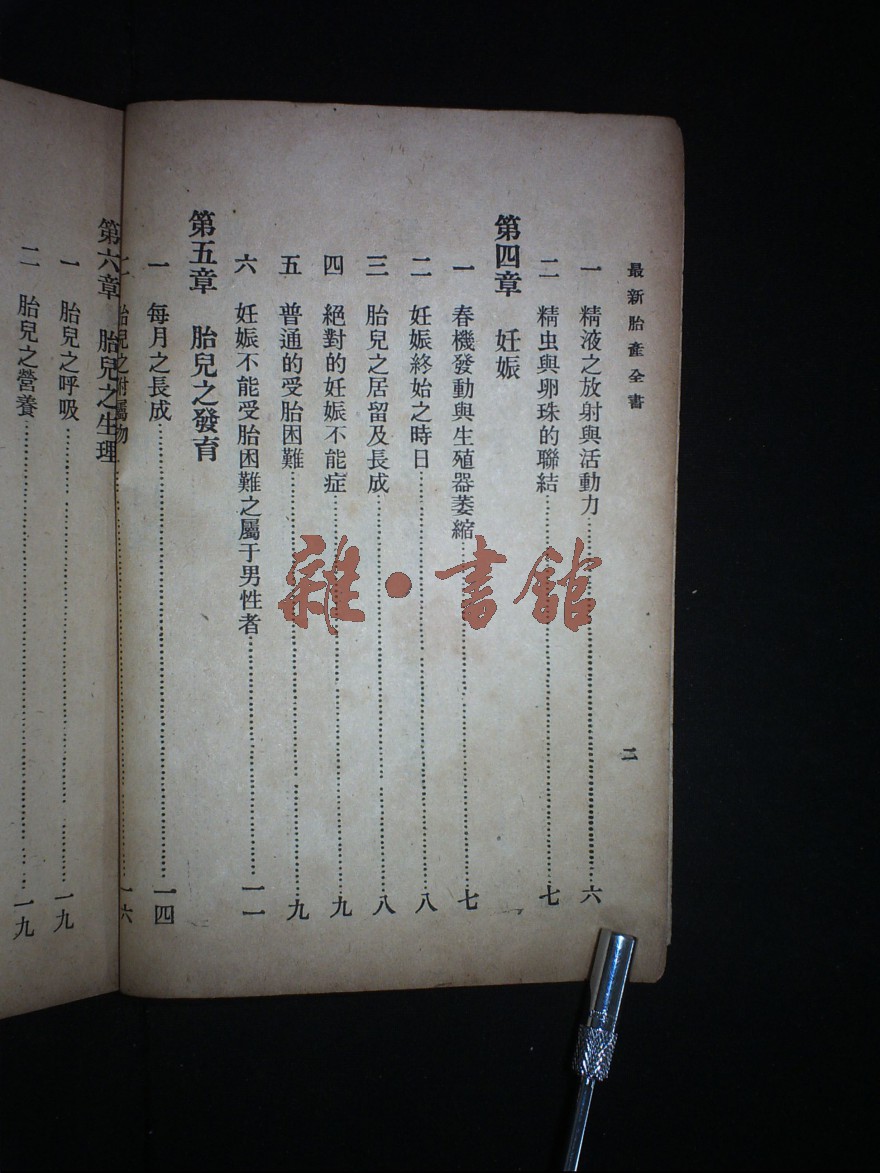 最新胎產全書
二
一 精液之放射與活動力……六
二 精虫與卵珠的聯結……七
第四章 妊娠
一 春機發動與生殖器萎縮……七
二 妊娠終始之時日……八
三 胎兒之居留及長成……八
四 絕對的妊娠不能症……九
五 普通的受胎困難……九
六 妊娠不能受胎困難之屬于男性者……一一
第五章 胎兒之發育
一 每月之長成……一四
二 胎兒之附屬物……一六
第六章 胎兒之生理
一 胎兒之呼吸……一九
二 胎兒之營養……一九
雜·書館